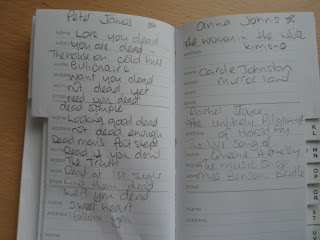 Peter James
Love you dead
you are dead
The house on cold hill
Billionaire
want you dead
not dead yet
need you dead
dead simple
Looking good dead
not dead enough
Dead mans foot steps
Dead if you dont
The Truth
Dead at 1st sight
Find them dead
Left you dead
Sweet heart
I follow you
Anna Johns
the woman in the white
kimono
Carole Johnston
mirrorland
Rachel Joyce
the unlikely Pilgrimage
of Harold Fry
The love song of
Queenie Hennessy
The Music Shop
Miss Benson Beetle
KL
MN
OP
QR
ST